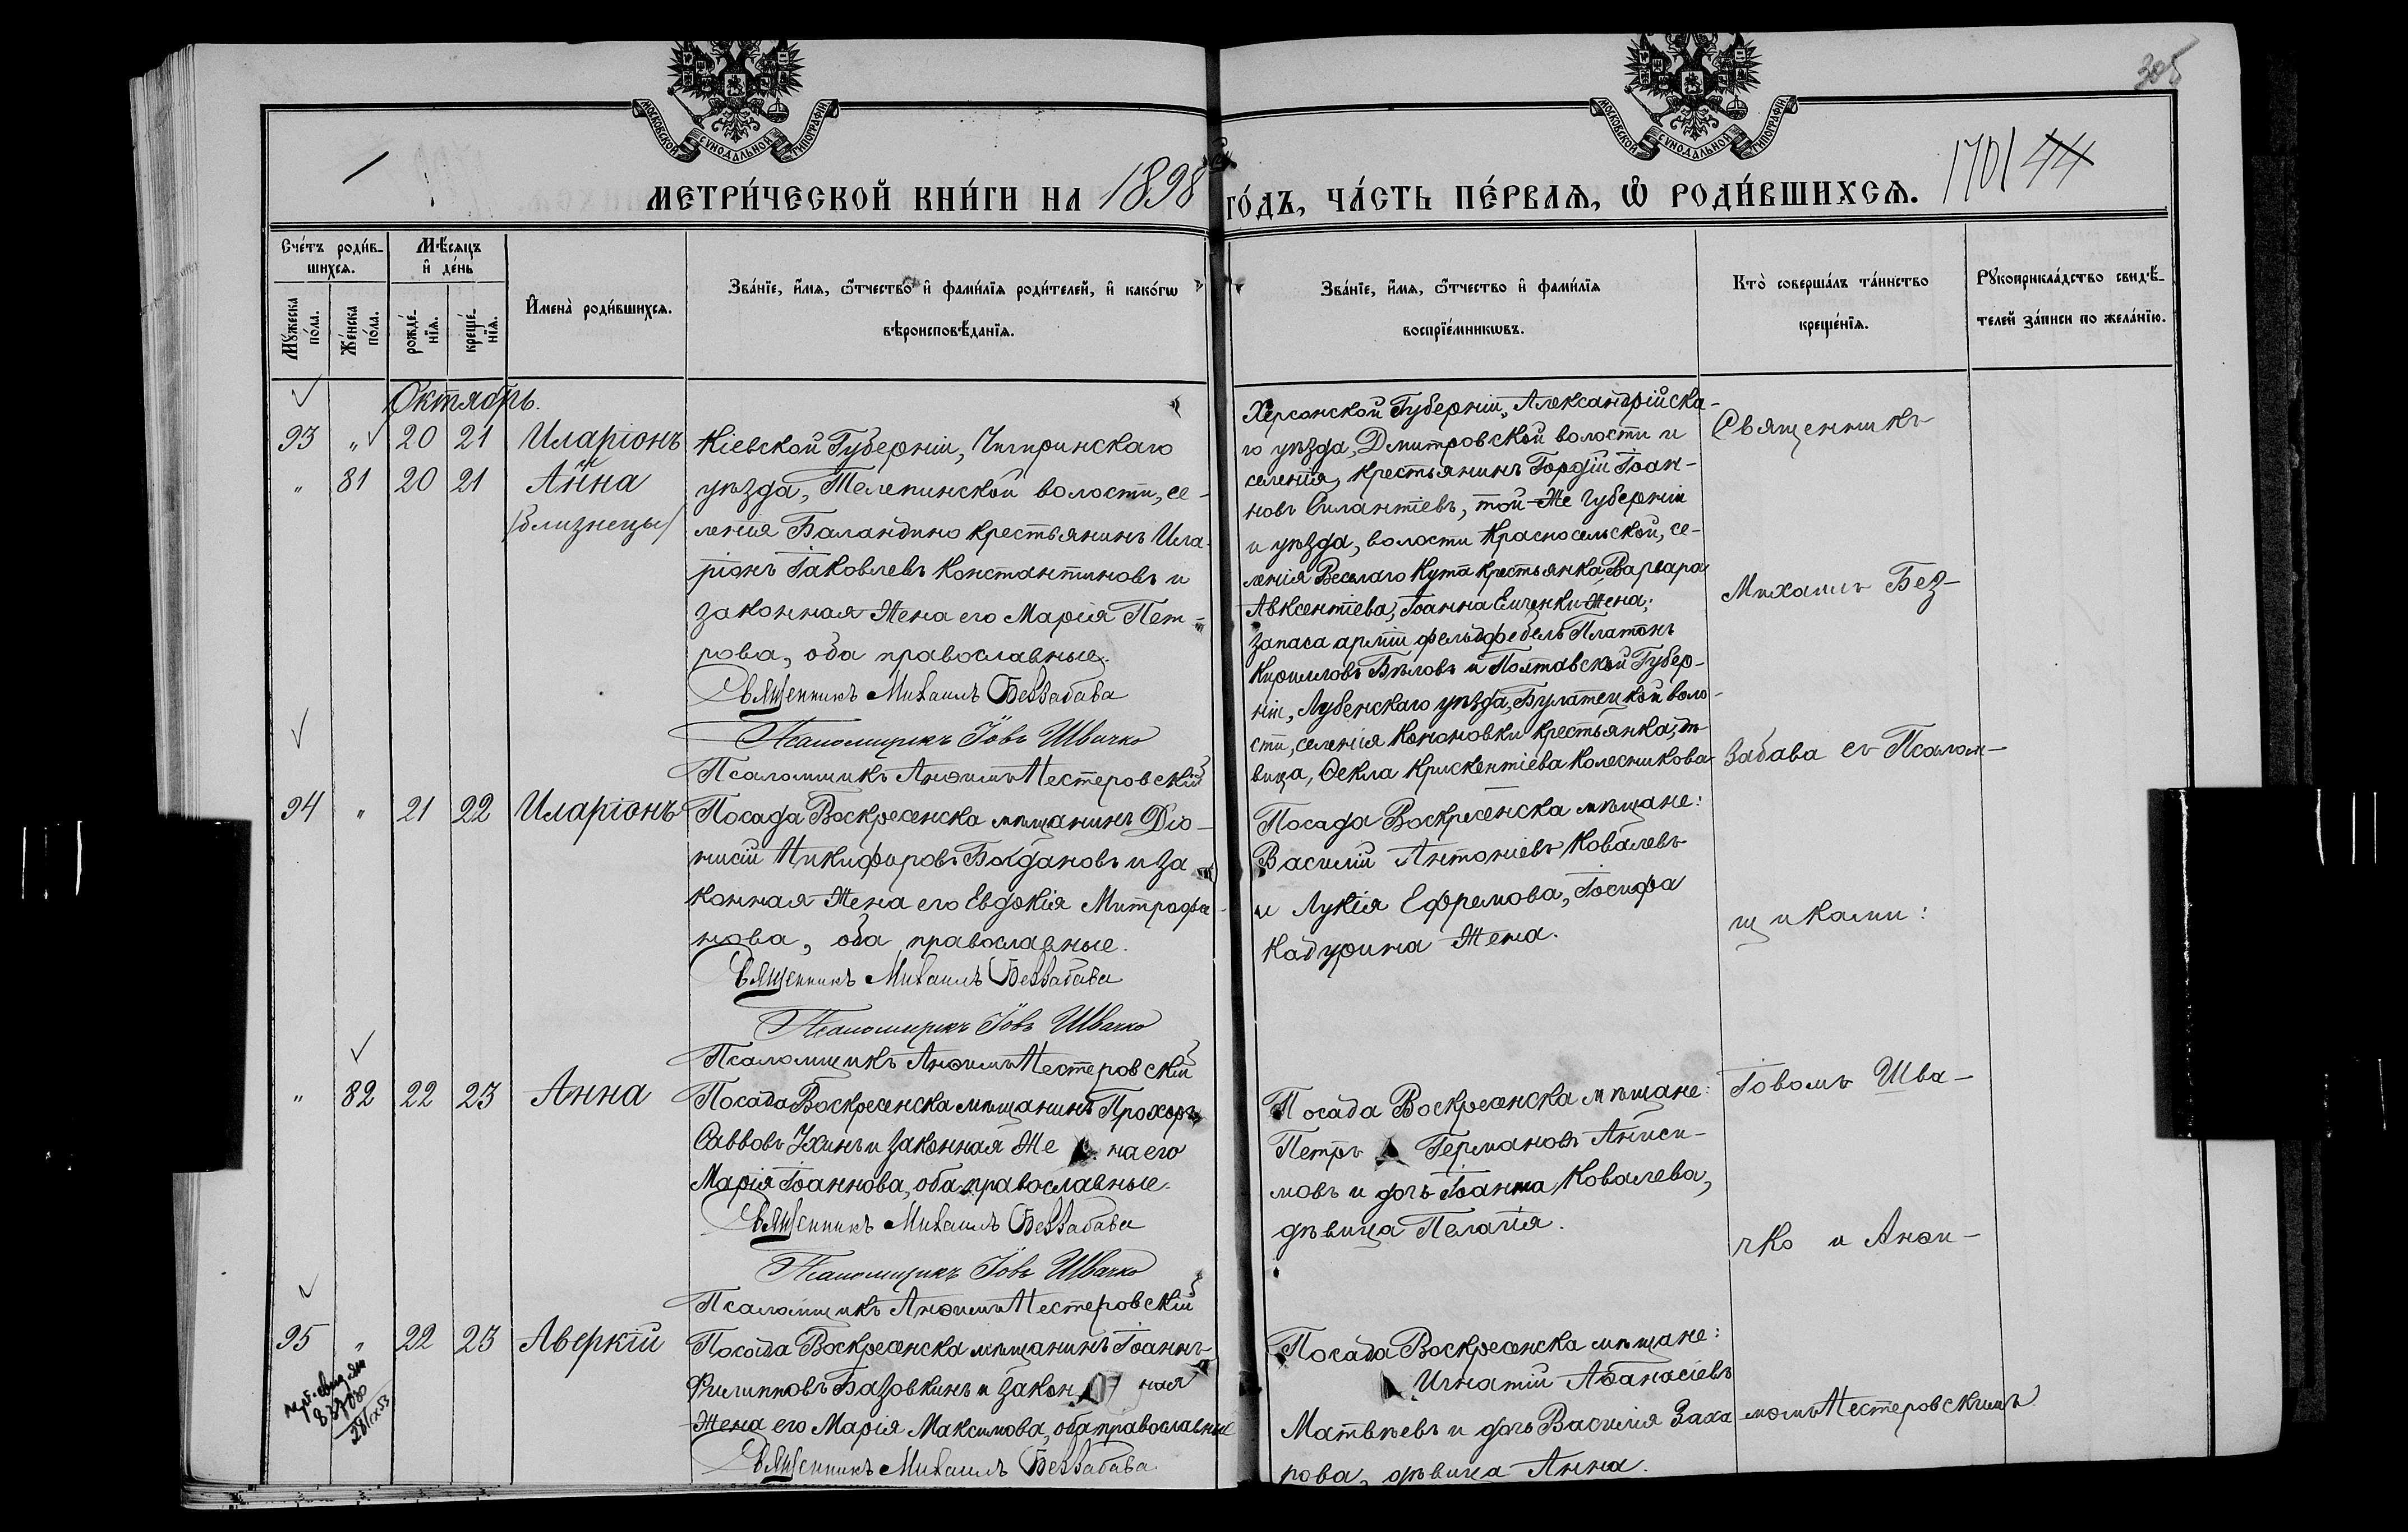 305
МОСКОВСКОЙ СѴНОДАЛЬНОЙ ТИПОГРАФІИ
МОСКОВСКОЙ СѴНОДАЛЬНОЙ ТИПОГРАФІИ
МЕТРИ́ЧЕСКОЙ КНИ́ГИ НА 1898 ГО́ДЪ, ЧА́СТЬ ПЕ́РВАѦ, Ѽ РОДИ́ВШИХСѦ. 170 / 44
Сче́тъ роди́в-
шихсѧ.
Мѣ́сѧцъ
и҆ де́нь
Мꙋ́жеска
по́ла.
Же́нска
по́ла.
рожде́-
нїѧ.
креще́-
нїѧ.
И҆мена̀ роди́вшихсѧ.
Зва́нїе, и҆́мѧ, ѻ҆́тчество и҆ фами́лїѧ роди́телей, и҆ како́гѡ
вѣроисповѣ́данїѧ.
Зва́нїе, и҆́мѧ, ѻ҆́тчество и҆ фами́лїѧ
воспрїе́мникѡвъ.
Кто̀ соверша́лъ та́инство
креще́нїѧ.
Рꙋкоприкла́дство свидѣ́-
телей за́писи по жела́нїю.
Октябрь.
93 " 20 21 Иларіонъ
" 81 20 21 Анна
/близнецы/
Кіевской Губерніи, Чигиринскаго
уѣзда, Телепинской волости, се-
ленія Баландино крестьянинъ Ила-
ріонъ Іаковлевъ Константиновъ и
законная жена его Марія Пет-
рова, оба православные.
Священникъ Михаилъ Беззабава
Псаломщикъ Іовъ Швачко
Псаломщикъ Анѳимъ Нестеровскій
Херсонской Губерніи, Александрійска-
го уѣзда, Дмитровской волости и
селенія, крестьянинъ Гордій Іоан-
новъ Силантіевъ, той-же губерніи
и уѣзда, волости Красносельской, се-
ленія Веселаго Кута крестьянка Варвара
Авксентіева, Іоанна Енченки жена;
запаса арміи фельдфебель Платонъ
Кирилловъ Бѣловъ и Полтавской Губер-
ніи, Лубенскаго уѣзда, Булатецкой воло-
сти, селенія Кононовки крестьянка, дѣ-
вица, Ѳекла Крискентіева Колесникова
Священникъ
Михаилъ Без-
забава съ Псалом-
щиками:
Іовомъ Шва-
чко и Анѳи-
момъ Нестеровскимъ
94 " 21 22 Иларіонъ
Посада Воскресенска мѣщанинъ Діо-
нисій Никифоровъ Богдановъ и за
конная жена его Евдокія Митрофа-
нова, оба православные.
Священникъ Михаилъ Беззабава
Псаломщикъ Іовъ Швачко
Псаломщикъ Анѳимъ Нестеровскій
Посада Воскресенска мѣщане:
Василій Антоніевъ Ковалевъ
и Лукія Ефремова, Іосифа
Кадурина жена.
" 82 22 23 Анна
Посада Воскресенска мѣщанинъ Прохоръ
Савввовъ Ухинъ и законная же на его
Марія Іоаннова, оба православные.
Священникъ Михаилъ Беззабава
Псаломщикъ Іовъ Швачко
Псаломщикъ Анѳимъ Нестеровскій
Посада Воскресенска мѣщане:
Петръ Германовъ Аниси-
мовъ и дочь Іоанна Ковалева,
дѣвица Пелагія.
95 " 22 23 Аверкій
Посада Воскресенска мѣщанинъ Іоаннъ
Филипповъ Базовкинъ и закон ная
жена его Марія Максимова, оба православные
Священникъ Михаилъ Беззабава
Посада Воскресенска мѣщане:
Игнатій Аѳанасіевъ
Матвѣевъ и дочь Василія Заха
рова, дѣвица Анна.